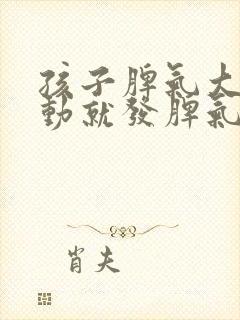 孩子脾氣大
動就發脾氣
肖夫